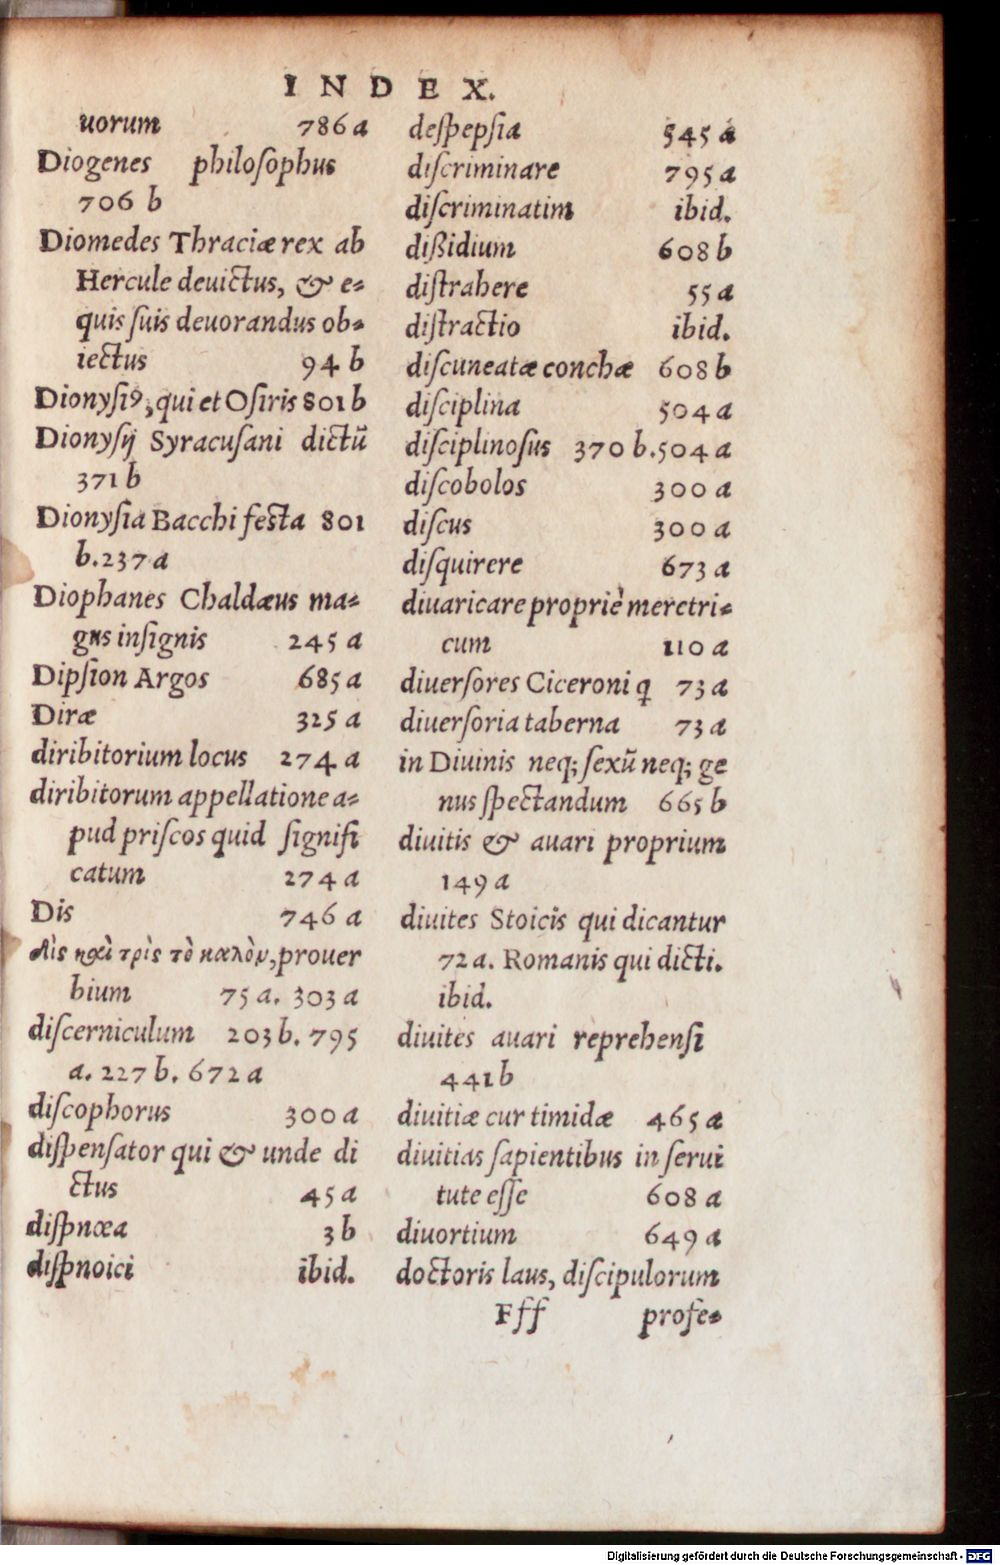 INDEX.
uorum 786 a
Diogenes philoſophus
706 b
Diomedes Thraciæ rex ab
Hercule deuictus, & e-
quis ſuis deuorandus ob-
iectus 94 b
Dionyſiꝰ, qui et Oſiris 801 b
Dionyſij Syracuſani dictū
371 b
Dionyſia Bacchi feſta 801
b. 237 a
Diophanes Chaldæus ma-
gus inſignis 245 a
Dipſion Argos 685 a
Diræ 325 a
diribitorium locus 274 a
diribitorum appellatione a-
pud priſcos quid ſignifi
catum 274 a
Dis 746 a
Δὶς καὶ τρὶς τὸ καλὸν, prouer
bium 75 a. 303 a
diſcerniculum 203 b. 795
a. 227 b. 672 a
diſcophorus 300 a
diſpenſator qui & unde di
ctus 45 a
diſpnœa 3 b
diſpnoici ibid.
deſpepſia 545 a
diſcriminare 795 a
diſcriminatim ibid.
dißidium 608 b
diſtrahere 55 a
diſtractio ibid.
diſcuneatæ conchæ 608 b
diſciplina 504 a
diſciplinoſus 370 b. 504 a
diſcobolos 300 a
diſcus 300 a
diſquirere 673 a
diuaricare propriè meretri-
cum 110 a
diuerſores Ciceroni q 73 a
diuerſoria taberna 73 a
in Diuinis neq; ſexū neq; ge
nus ſpectandum 665 b
diuitis & auari proprium
149 a
diuites Stoicis qui dicantur
72 a. Romanis qui dicti.
ibid.
diuites auari reprehenſi
441 b
diuitiæ cur timidæ 465 a
diuitias ſapientibus in ſerui
tute eſſe 608 a
diuortium 649 a
doctoris laus, diſcipulorum
Fff profe-
Digitalisierung gefördert durch die Deutsche Forschungsgemeinschaft - DFG